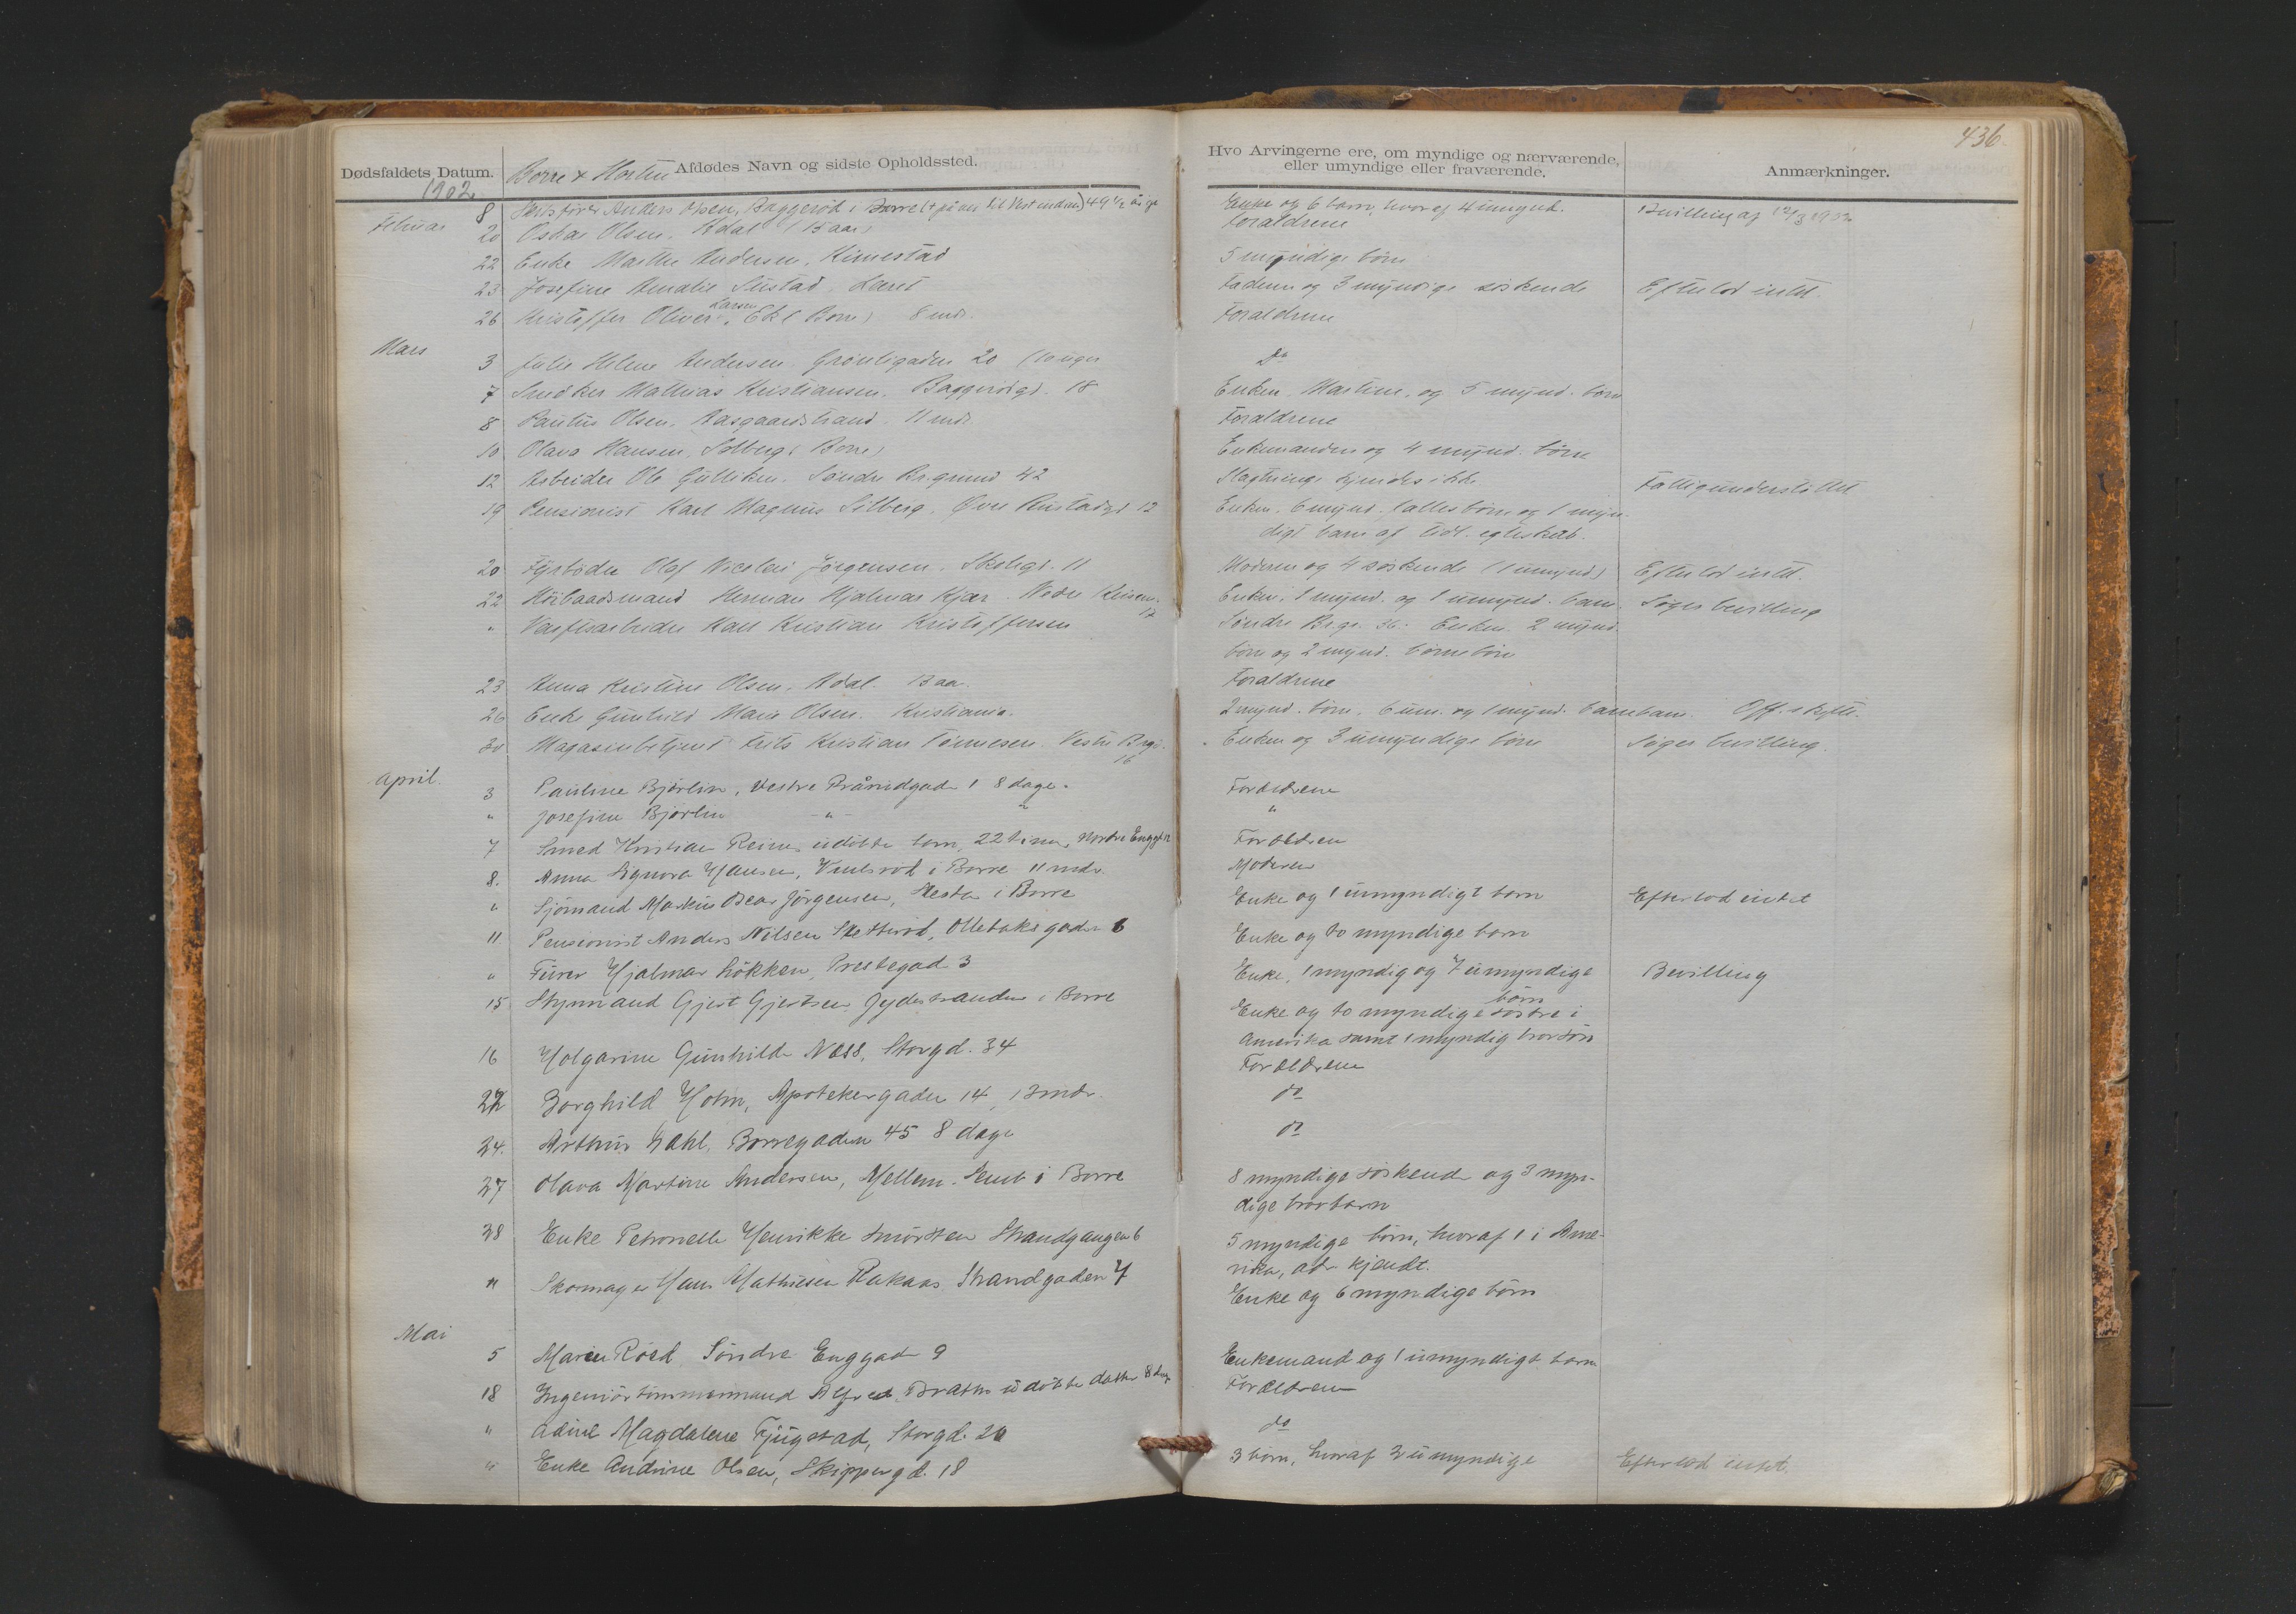 436.
Dødsfaldets Datum. Borre & Horten Afdødes Navn og sidste Opholdssted. Hvo Arvingerne ere, om myndige og nærværende, eller umyndige eller fraværende. Anmærkninger.
1902
Februar 8 Anders Olsen, Baggerød i Borre 49 1/2 Enke og 6 barn, hvoraf 4 umynd. Bevilling af 12/3 1902
20 Oskar Olsen. Adal (13 aar) Forældrene
22 Enke Marthe Andersen. 5 myndige børn
23 Josefine Amalie Faderen og 3 myndige søskende Efterlod intet.
26 Kristoffer Oliver Larsen, (Borre) 8 mdr. Forældrene
Mars 3 Julie Helene Andersen Grønligaden 20 (10 uger do
7 Snedker Mathias Kristiansen. Baggerødgd. 18 Enken Martine, og 5 mynd. børn
8 Paulus Olsen, Aasgaardstrand. 11 mdr. Forældrene
10 Olava Hansen, Solberg (Borre) Enkemanden og 4 mynd. børn
12 Arbeider Ole Gulliksen. Søndre Br.grund 42 Slægtninge kjendes ikke. Fattigunderstøttet
19 Pensionist Karl Magnus Silberg. Øvre 12 Enken, 6 mynd. fælles børn og 1 myn-
digt barn af tidl. egteskab.
20 Fyrbøder Olaf Nicolai Jørgensen. Skolegd. 11 Moderen og 4 søskende (1 umynd) Efterlod intet.
22 Herman Hjalmar Kjær. Nedre Keisem. 12 Enken, 1 mynd. og 1 umynd. barn. Søger bevilling
" Værftsarbeider Karl Kristian Kristoffersen Søndre Br.gr. 36. Enken. 2 mynd.
børn og 2 mynd. børnebørn
23 Anna Kristine Olsen, Adal. 13 aar. Forældrene
26 Enke Gunhild Marie Olsen. Kristiania. 2 mynd. børn, 6 um. og 1 mynd. barnebarn. Off. skifte.
30 Magasinbetjent Frits Kristian Tønnesen. Vestre Brgd. 16 Enken og 3 umyndige børn Søger bevilling.
April. 3 Pauline Bjørlin, Vestre 1 8 dage. Forældrene
" Josefine Bjørlin " " "
7 Smed Kristian Reines udøbte barn, 22 timer, Nordre Enggt 12 Forældren
8. Anna Signora Hansen, i Borre 11 mdr. Moderen
" Sjømand Markus Oscar Jørgensen, i Borre Enke og 1 umyndigt barn Efterlod intet
11 Pensionist Anders Nilsen Skotterød, Ollebakegaden 6 Enke og to myndige barn
" Furer Hjalmar Løkken, Prestegad 3 Enke, 1 myndig og 7 umyndige børn Bevilling
15 Styrmand Gjert Gjertsen, i Borre Enke og to myndige søstre i
Amerika samt 1 myndig brorsøn
16 Holgarine Gunhilde Næss, Storgd. 34 Forældrene
22 Borghild Holm, Apotekergaden 14, 13 mdr. do
24. Arthur Dahl, Borregaden 45 8 dage do
27 Olava Martine Andersen, Mellem-Semb i Borre 8 myndige søskende og 3 myn-
dige brorbarn
28 Enke Petronelle Henrikke Strandgangen 6 5 myndige børn, hvoraf 1 i Ame-
rika, adr kjendt.
" Skomager Hans Mathisen Strandgaden 7 Enke og 6 myndige børn
Mai 5 Maren Røed Søndre Enggad 9 Enkemand og 1 umyndigt barn
18 Ingeniørtømmermand Alfred udøbte datter 8 dage Forældren
" Adine Magdalene Fjugstad, Storgd. 20 do
" Enke Andrine Olsen, Skippergd. 18 3 børn, hvoraf 2 umyndige Efterlod intet.